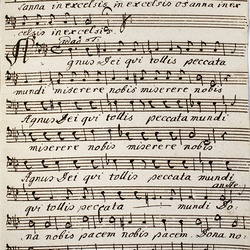 sanna in excelsis in excelsis osanna in ex
celsis in excelsis.
Agnus Dei qui tollis peccata
mundi miserere nobis miserere nobis
Agnus Dei qui tollis peccata mundi
miserere nobis miserere nobis
Agnus Dei qui tollis peccata mundi
qui tollis peccata mundi Do
na nobis pacem nobis pacem. Dona no